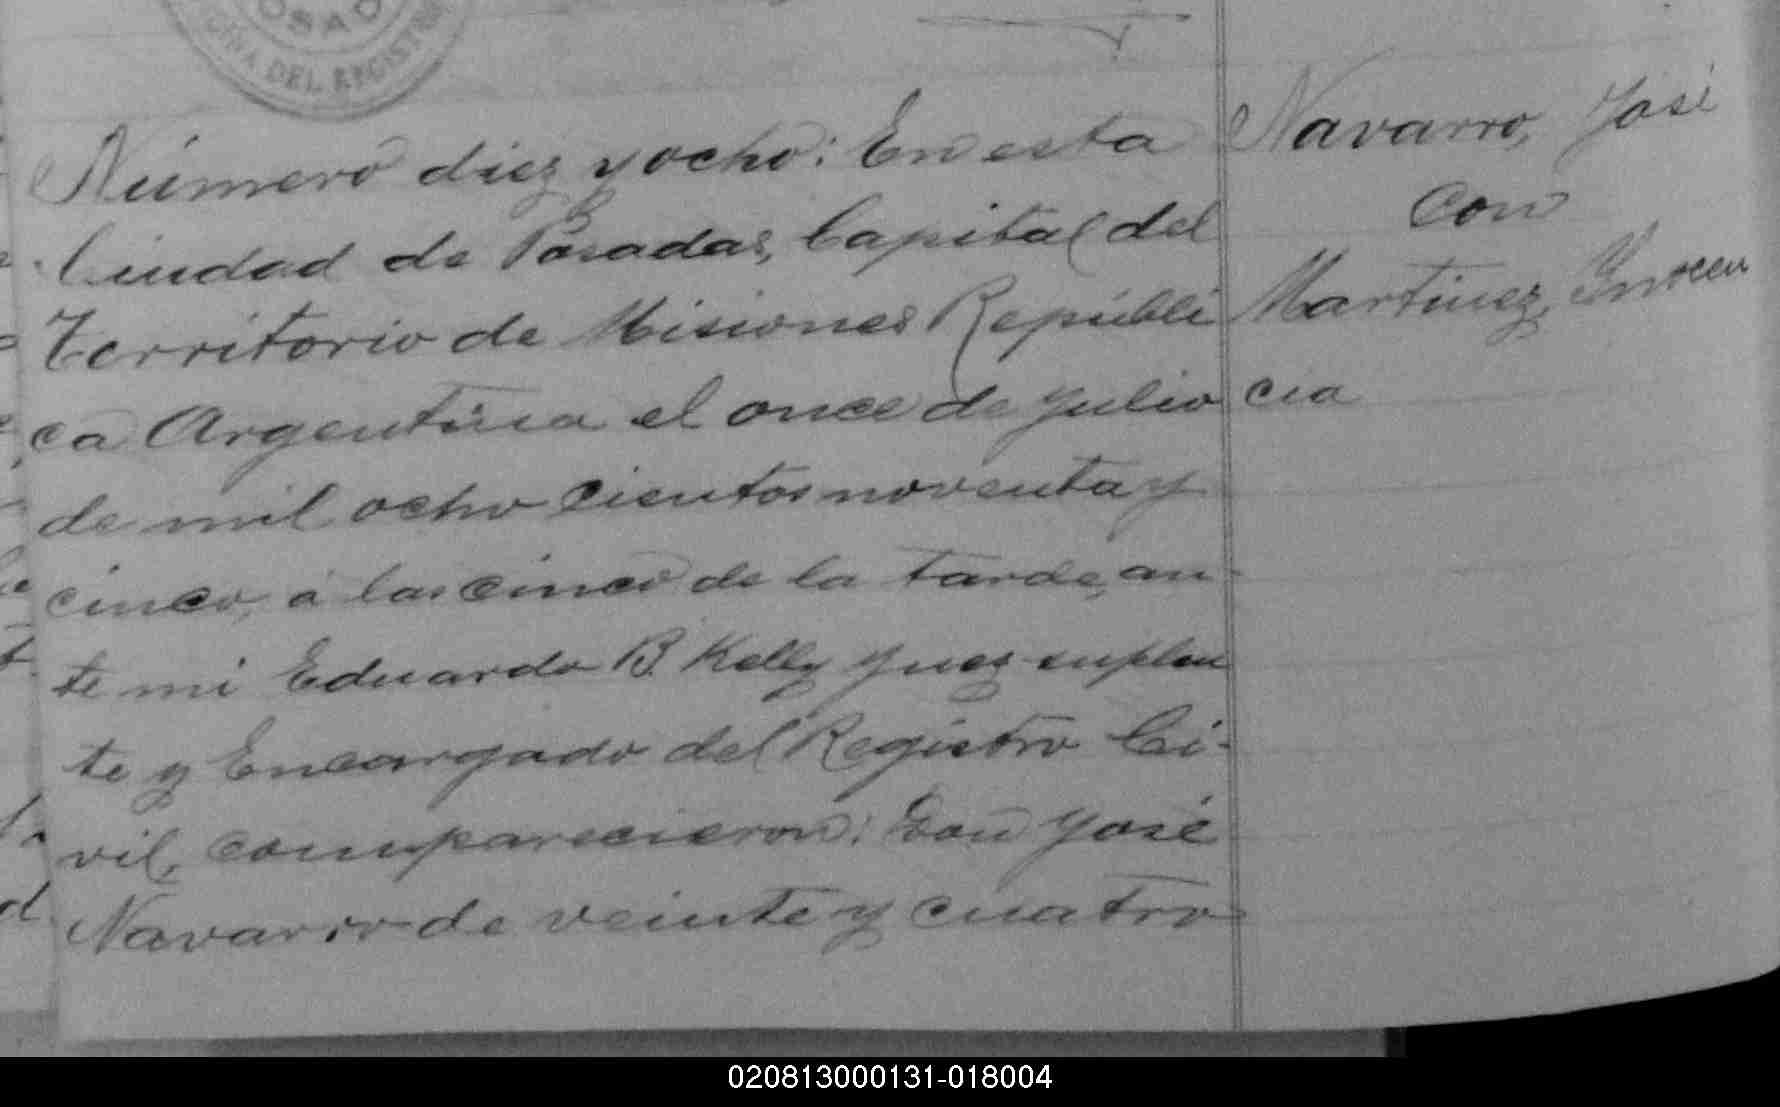 OSAD
CINA DEL REGISTRO
Número diez y ocho: En esta
Ciudad de Posadas, Capital del
Territorio de Misiones Repúbli
ca Argentina el once de Julio
de mil ocho cientos noventa y
cinco, á las cinco de la tarde, an-
te mi Eduardo B. Kelly Juez suplen
te y Encargado del Registro Ci-
vil, comparecieron: Don José
Navarro de veinte y cuatro
Navarro, José
con
Martinez, Inocen
cia
020813000131-018004